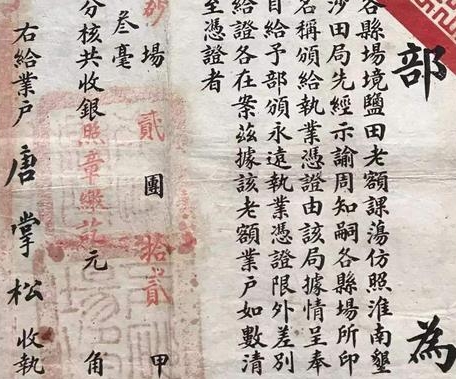 部為
各縣場境鹽田老額課蕩仿照淮南墾
沙田局先經示諭周知嗣各縣場所印
名稱頒給執業憑證由該局據情呈奉
目給予部頒永遠執業憑證限外差別
給證各在案茲據該老額業戶如數清
至憑證者
場貳團拾貳甲
叁毫
分核共收銀照章繳訖元角
右給業戶唐掌松收執